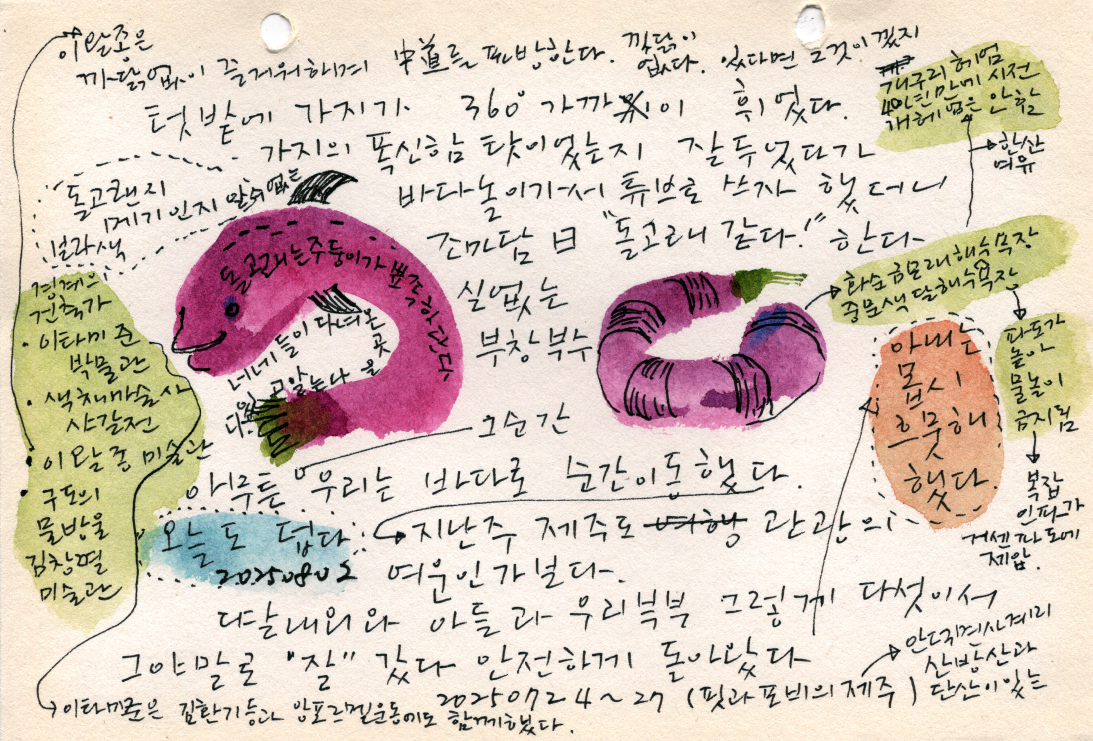 이왈종은
까닭없이 즐거워하게 中道를 표방한다. 까닭이 없다. 있다면 그것이겠지
텃밭에 가지가 360° 가까이 휘었다.
가지의 폭신함 탓이었는지 잘 두었다가
바다놀이가서 튜브로 쓰자 했더니
조마담 曰 "돌고래 같다!" 한다
실없는
부창부수
그 순간
아무튼 우리는 바다로 순간이동했다.
오늘도 덥다
20250802
지난주 제주도 관광의
여운인가보다.
딸내외와 아들과 우리부부 그렇게 다섯이서
그야말로 "잘" 갔다 안전하게 돌아왔다
20250724~27 (핏과 포비의 제주)
돌고랜지
메기인지 알 수 없는
보라색
돌고래는 주둥이가 뾰족하단다
너네들이 다녀온 곳
다 알는다
경계의
건축가
• 이타미 준
박물관
• 색채마술사
샤갈전
• 이왈종 미술관
• 구도의
물방울
김창열
미술관
개구리헤엄
40년만에 시전
개헤엄은 안함
한산
여유
화순금모래해수욕장
중문색달해수욕장
파도가
높아
물놀이
금지됨
복잡
인파가
거센파도에
제압.
아내는
몹시
흐뭇해
했다.
안덕면사계리
산방산과
단산이있는
이타미준은 김환기등과 앙포르멜운동에도 함께했다.